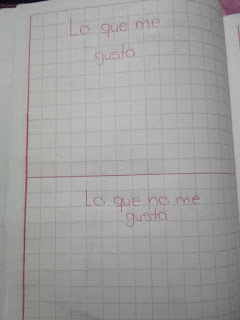 Lo que me
gusta
Lo que no me
gusta